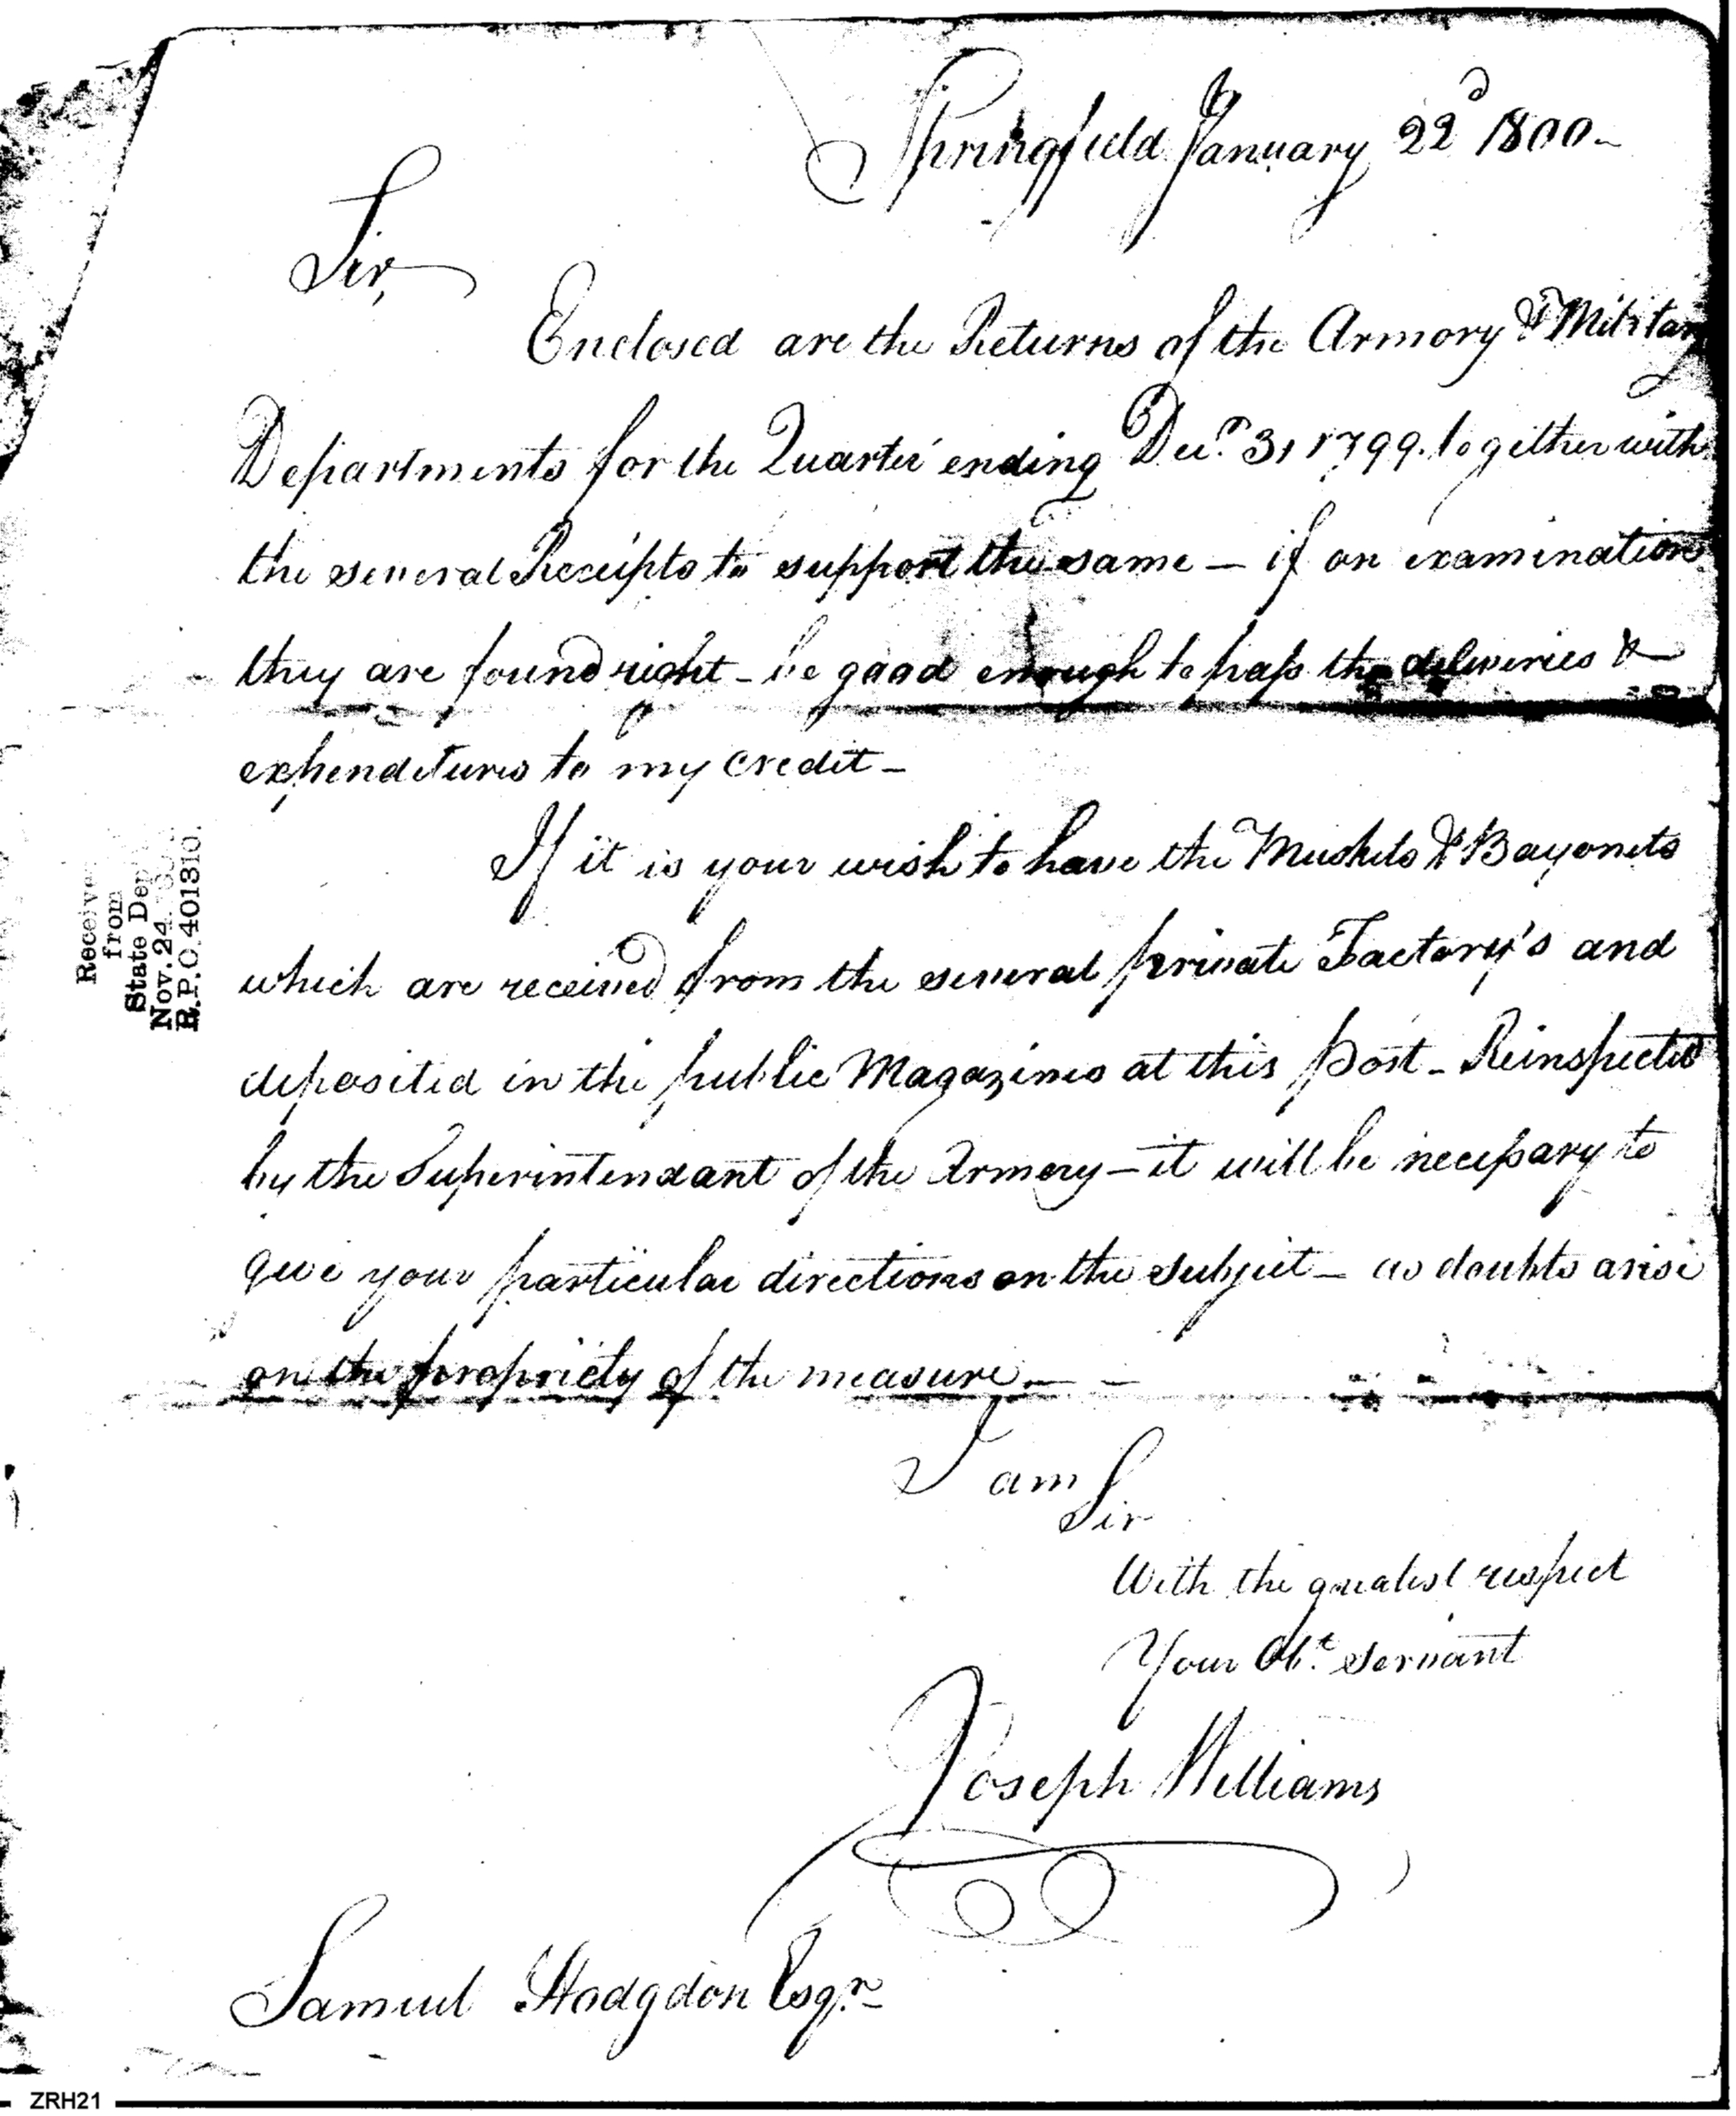 Springfield January 22d 1800 -
Sir,
Enclosed are the Returns of the Armory & Military
Departments for the Quarter ending Decr. 31 1799. together with
the several Receipts to support the same - if on examination
they are found right - be good enough to pass the deliveries &
expenditures to my credit -
If it is your wish to have the Muskets & Bayonets
which are received from the several private Factory's and
deposited in the public Magazines at this post - Reinspected
by the Superintendant of the Armory - it will be necessary to
give your particular directions on the subject - as doubts arise
on the propriety of the measure. - -
I am
Sir
With the greatest respect
Your Obt. servant
Joseph Williams
Samuel Hodgdon Esqr.
Received
from
State Dep
Nov. 24
R.P.O. 401310.
ZRH21